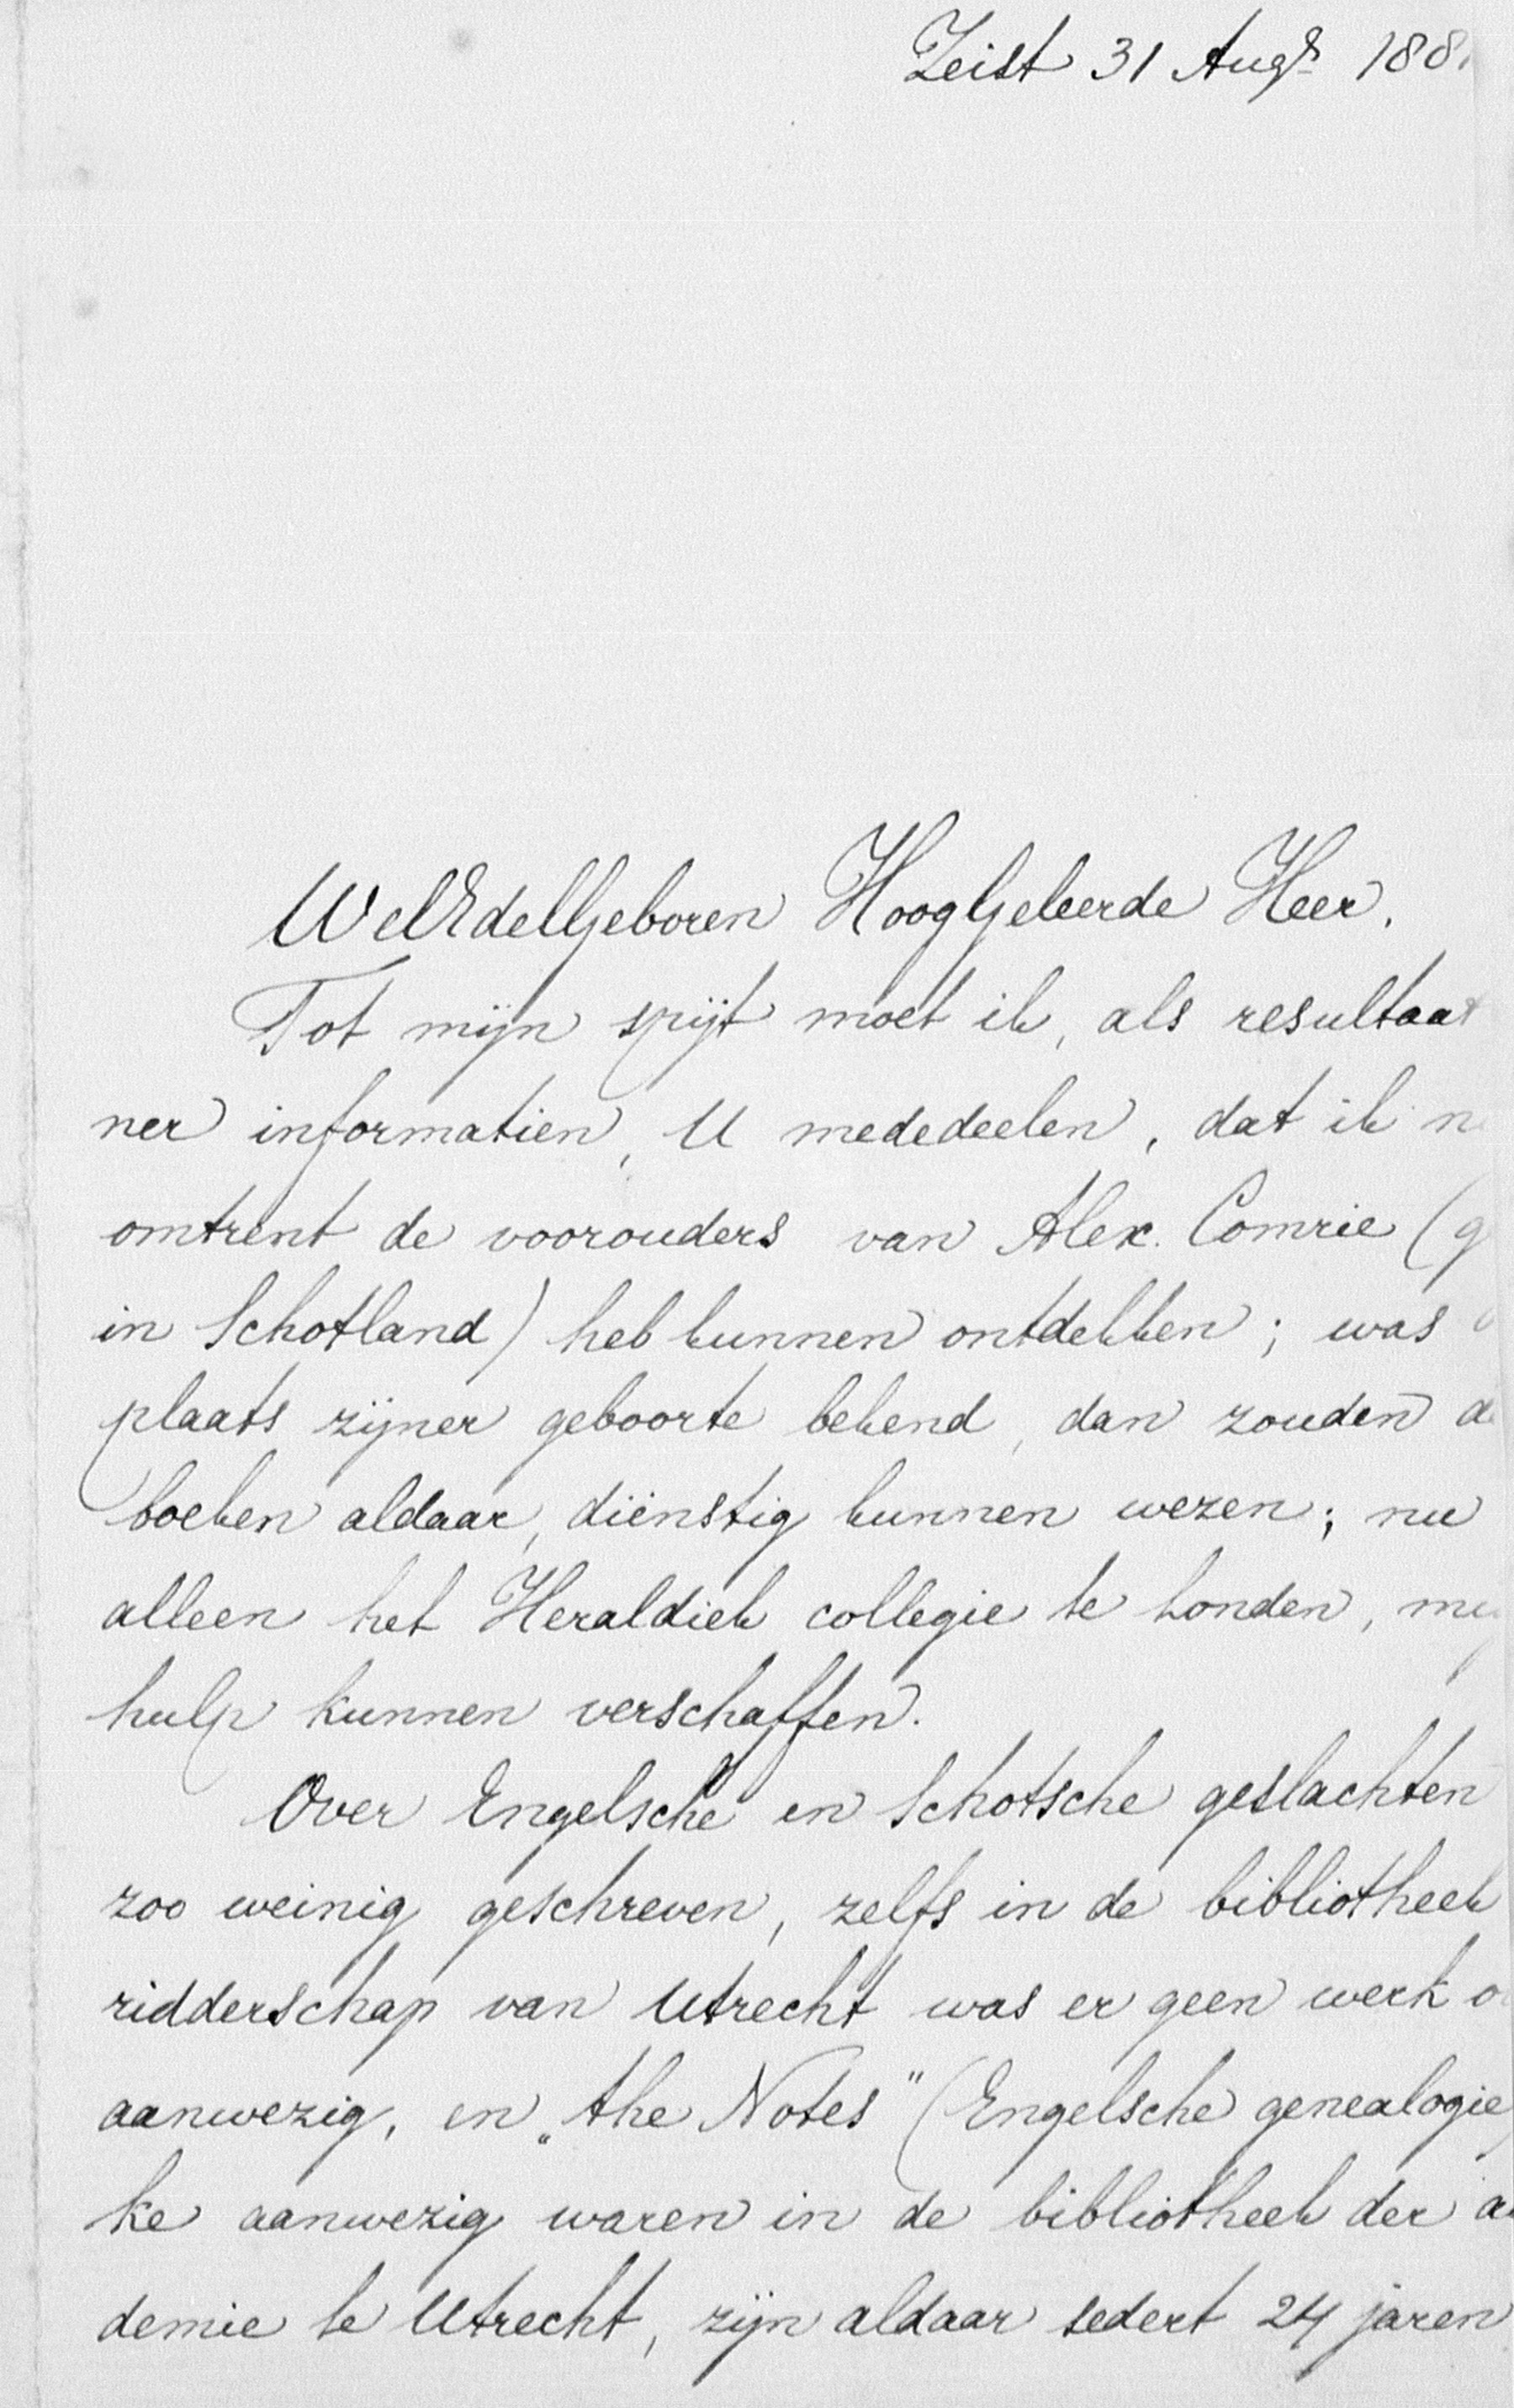 Zeist 31 Augs 188
WelEdelGeboren HoogGeleerde Heer.
Tot mijn spijt moet ik, als resultaat
ner informatien, U mededeelen, dat ik n
omtrent de voorouders van Alex. Comrie (g
in Schotland) heb kunnen ontdekken; was
plaats zijner geboorte bekend, dan zouden d
boeken aldaar, diënstig kunnen wezen; nu
alleen het Heraldiek collegie te Londen, mij
hulp kunnen verschaffen.
Over Engelsche en Schotsche geslachten
zoo weinig geschreven, zelfs in de bibliotheek
ridderschap van Utrecht was er geen werk o
aanwezig, en „the Notes" (Engelsche genealogie
ke aanwezig waren in de bibliotheek der a
demie te Utrecht, zijn aldaar sedert 24 jaren